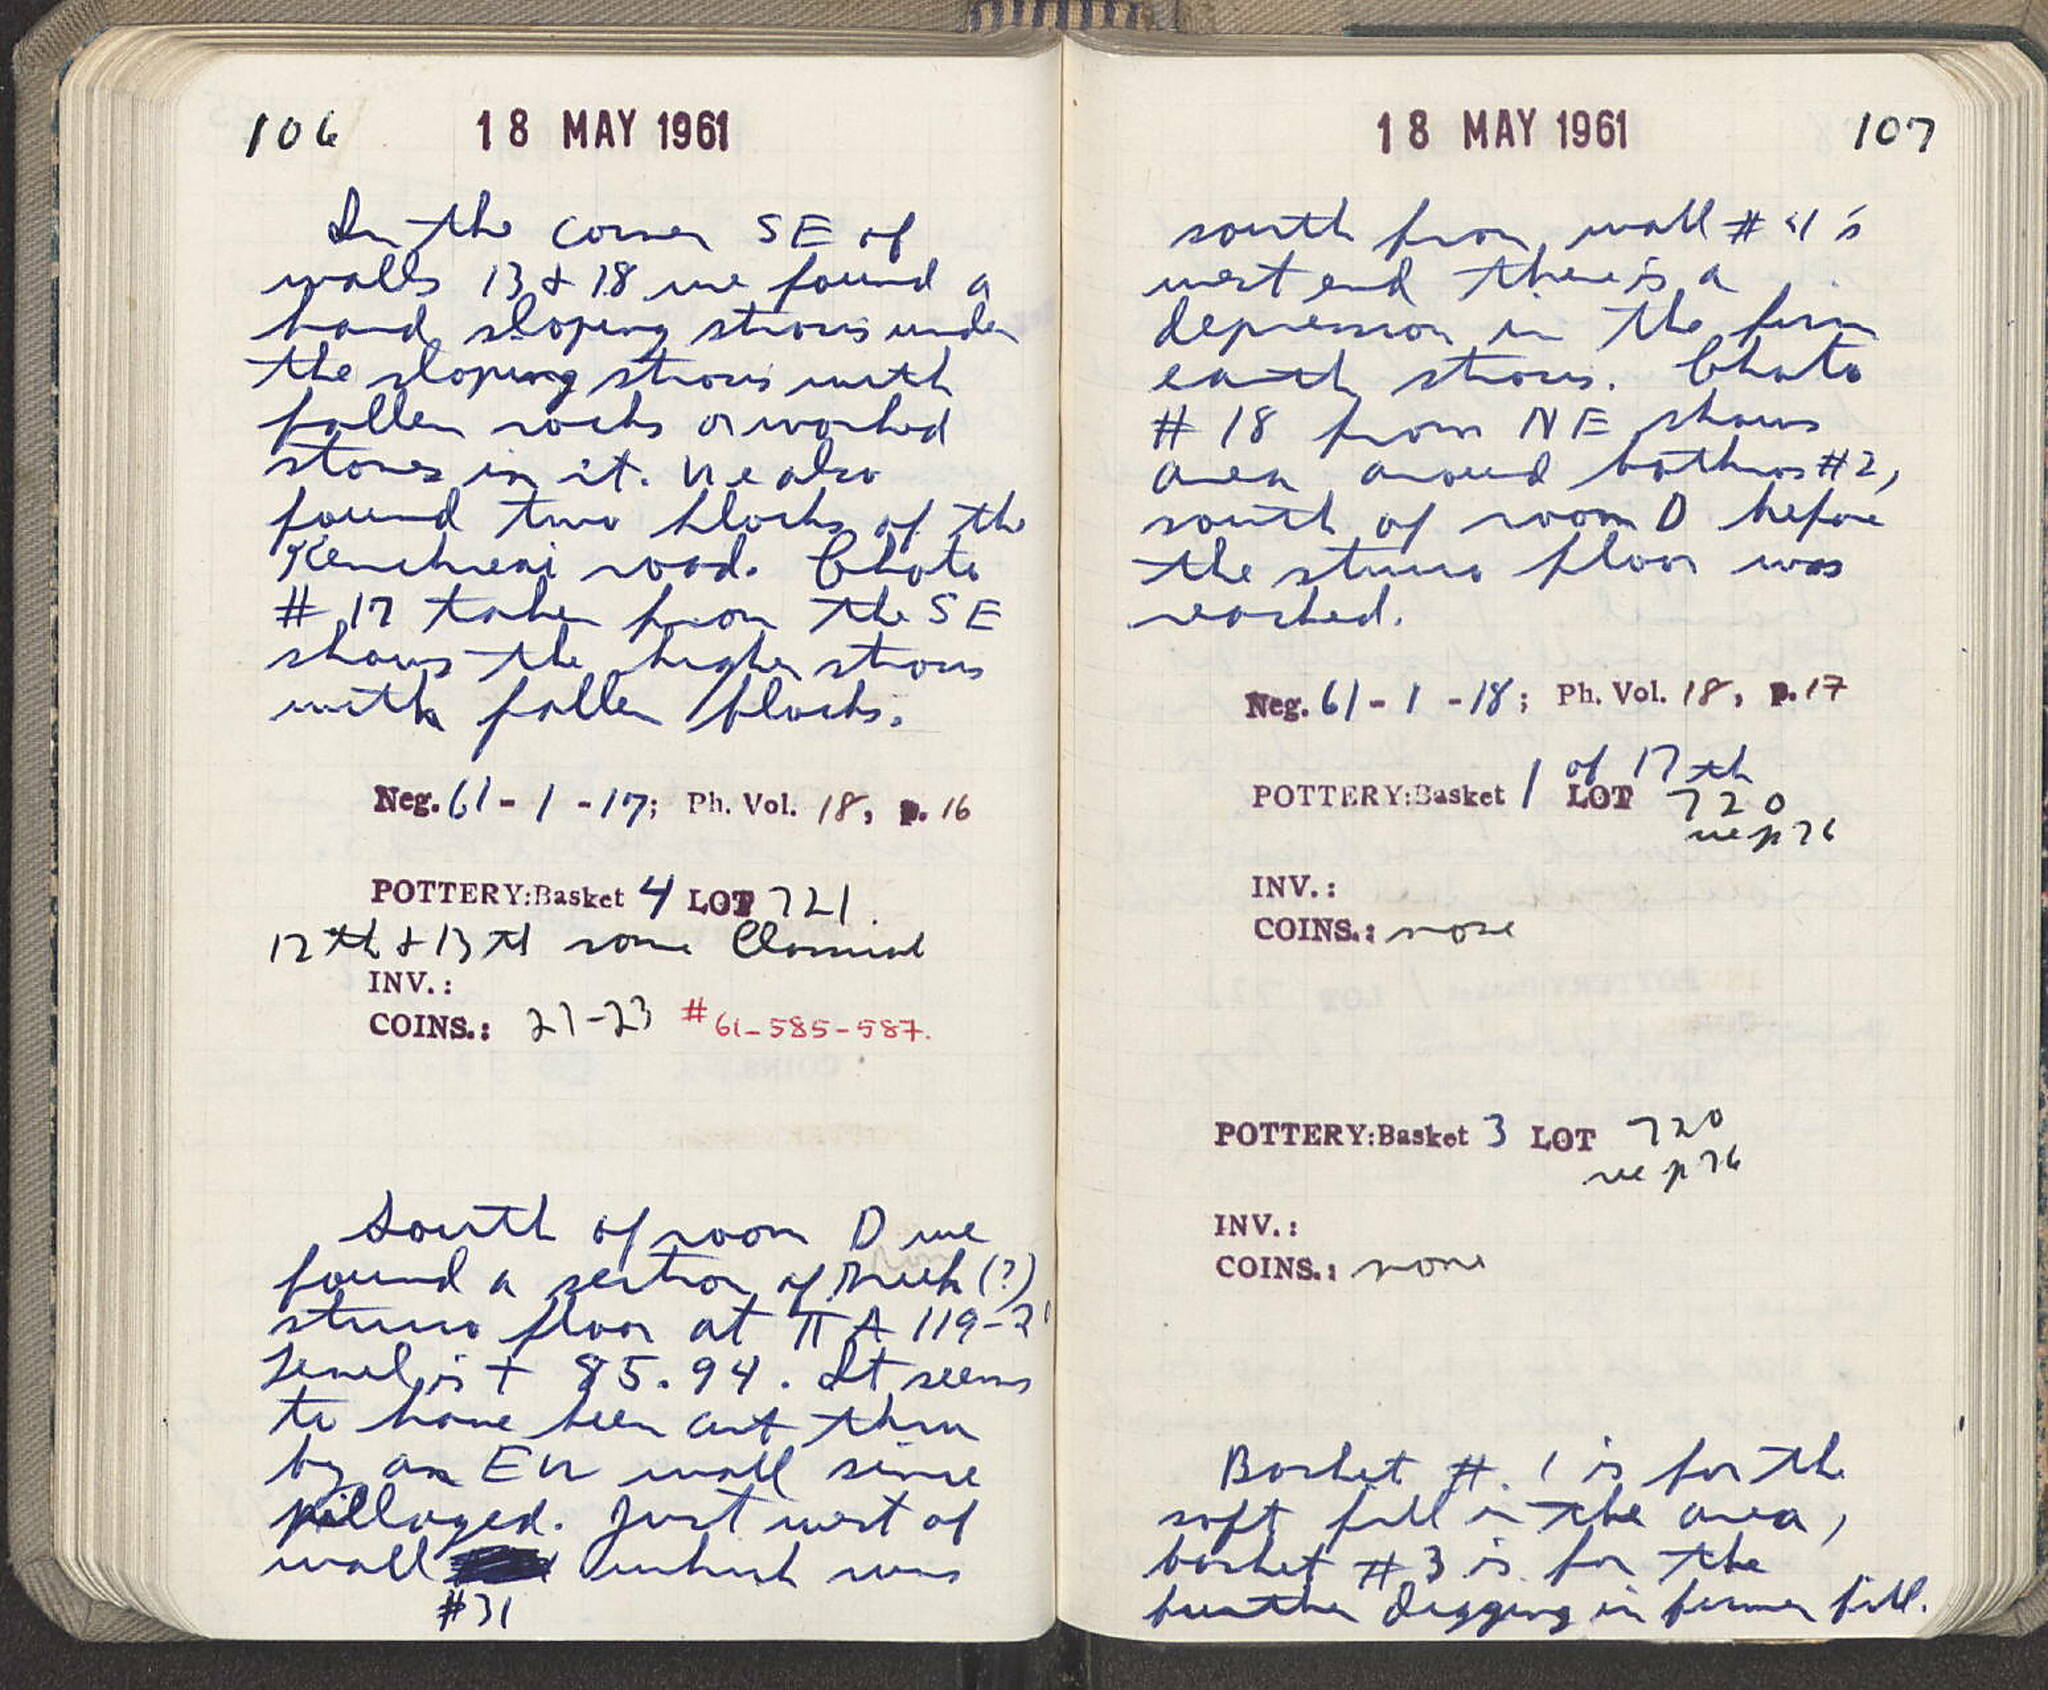 106 18 MAY 1961
In the corner SE of
walls 13 & 18 we found a
hard sloping stros under
the sloping stros with
fallen rocks or worked
stones in it. We also
found two blocks of the
Kenchreai road. Photo
# 17 taken from the SE
shows the higher stros
with fallen blocks.
Neg. 61 - 1 - 17; Ph. Vol. 18, p. 16
POTTERY: Basket 4 LOT 721.
12th & 13th some Classical
INV.:
COINS.: 21-23 #61-585-587.
South of room D we
found a section of Greek (?)
stucco floor at ΠA 119-2
Level is + 85.94. It seems
to have been cut thru
by an EW wall since
pillaged. Just west of
wall which was
#31
18 MAY 1961 107
south from wall # 's
west end there is a
depression in the firm
earth stros. Photo
# 18 from NE shows
area around bothros #2,
south of room D before
the stucco floor was
reached.
Neg. 61 - 1 - 18; Ph. Vol. 18, p. 17
of 17th
POTTERY: Basket 1 LOT 720
see p 76
INV.:
COINS.: none
POTTERY: Basket 3 LOT 720
see p 76
INV.:
COINS.: none
Basket #. 1 is for the
soft fill in the area,
basket #3 is for the
further digging in firmer fill.